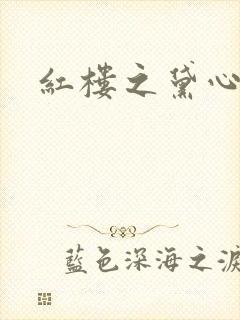 紅樓之黛心
藍色深海之淚